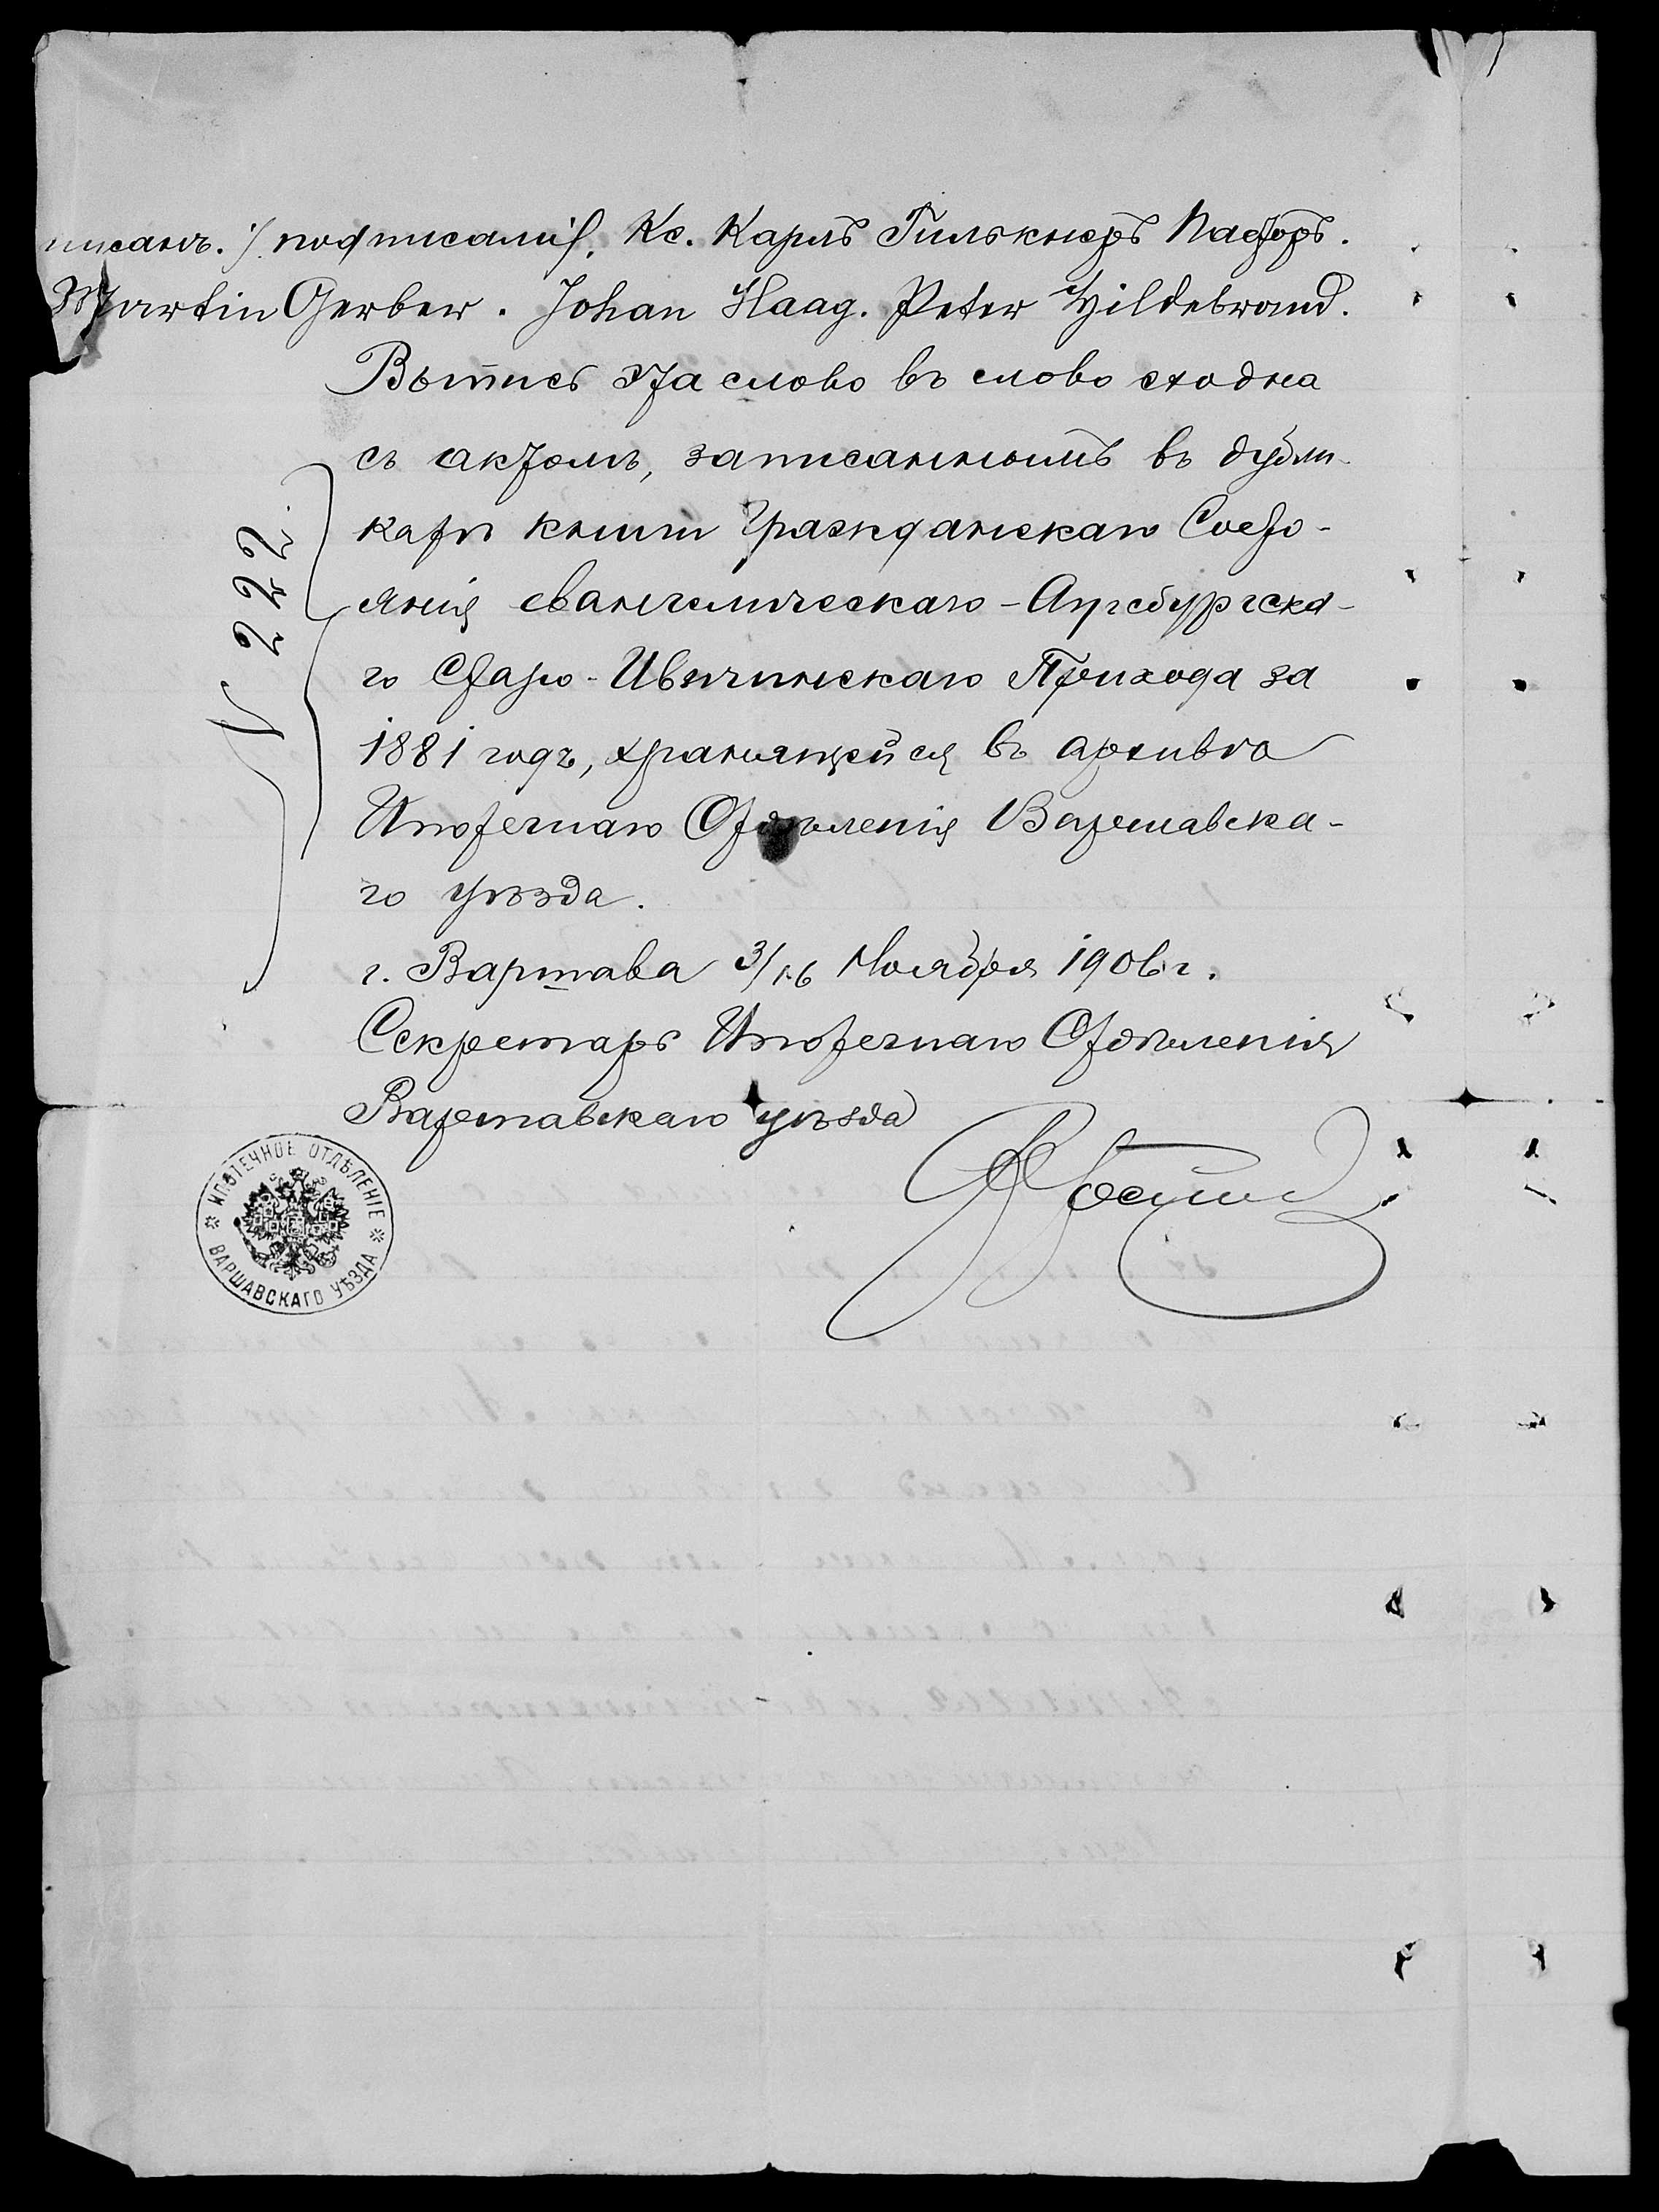 писанъ. / подписали/. Кс. Карлъ Гилькнеръ Пасторъ.
Martin Gerber. Johan Haag. Peter Hildebrand.
Выпись эта слово въ слово сходна
съ актомъ, записаннымъ въ дубли-
катѣ книги Гражданскаго Состо-
янія евангелическаго-Аугсбургска-
го Старо-Ивичинскаго Прихода за
1881 годъ, хранящейся въ архивѣ
Ипотечнаго Отдѣленія Варшавска-
го уѣзда.
г. Варшава 3/16 Ноября 1906 г.
Секретарь Ипотечнаго Отдѣленія
Варшавскаго уѣзда
N 222.
ИПОТЕЧНОЕ ОТДѢЛЕНІЕ
ВАРШАВСКАГО УѢЗДА